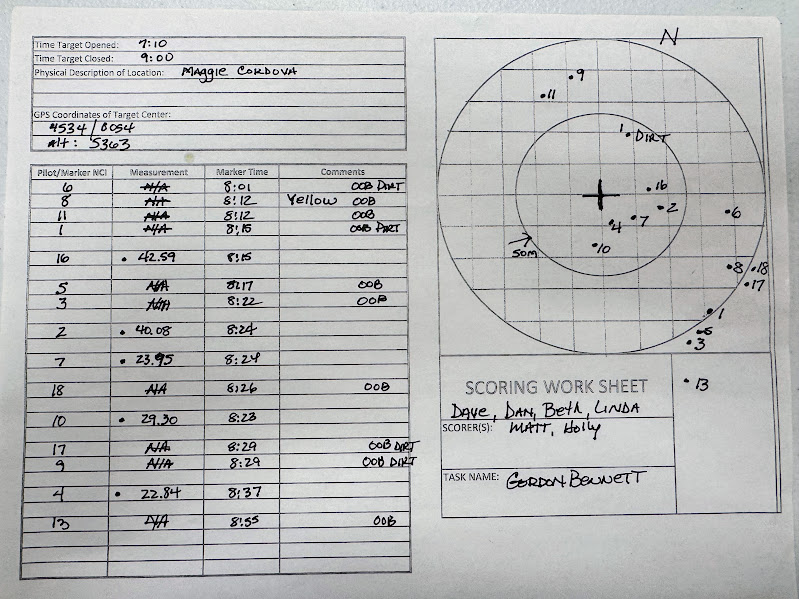 Time Target Opened: 7:10
Time Target Closed: 9:00
Physical Description of Location: MAggie CORDOVA
GPS Coordinates of Target Center:
4534 / 8054
Alt: 5363
Pilot/Marker NCI Measurement Marker Time Comments
6 N/A 8:01 OOB DIRT
8 N/A 8:12 Yellow OOB
11 N/A 8:12 OOB
1 N/A 8:15 OOB DIRT
16 • 42.59 8:15
5 N/A 8:17 OOB
3 N/A 8:22 OOB
2 • 40.08 8:24
7 • 23.95 8:24
18 N/A 8:26 OOB
10 • 29.30 8:23
17 N/A 8:29 OOB DIRT
9 N/A 8:29 OOB DIRT
4 • 22.84 8:37
13 N/A 8:55 OOB
N
9
11
1 DIRT
16
2
6
7
4
10
50M
8 18
17
1
5
3
13
SCORING WORK SHEET
DAVE, DAN, Beth, LINDA
SCORER(S): MATT, Holly
TASK NAME: GORDON BENNETT